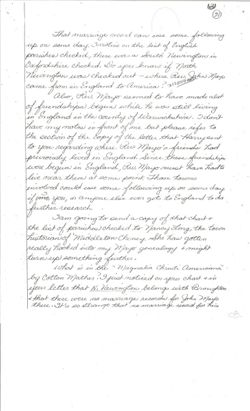 (2)
That marriage record can use some following
up on some day. I notice on the list of English
parishes checked, there was a South Newington in
Oxfordshire checked. Do you know if North
Newington was checked out - where Rev. John Mayo
came from in England to America?
Also, Rev. Mayo seemed to have made a lot
of friendships begun while he was still living
in England in the county of Warwickshire. I don't
have my notes in front of me but please refer to
the section of the copy of the letter that Harry sent
to you regarding where Rev. Mayo's friends had
previously lived in England. Since those friendships
were begun in England, Rev. Mayo must have had to
live near them at some point. Those towns
involved could use some following up on some day
if you, or anyone else ever got to England to do
further research.
I am going to send a copy of that chart &
the list of parishes checked to Nancy Long, the town
historian of Middleton Cheney. She has gotten
really hooked into my Mayo genealogy & might
turn up something further.
What is in the "Magnalia Christi Americana"
by Cotton Mather? I just noticed on your chart & in
your letter that N. Newington belongs with Broughton
& that there were no marriage records for John Mayo
there. It's so strange that no marriage record for him